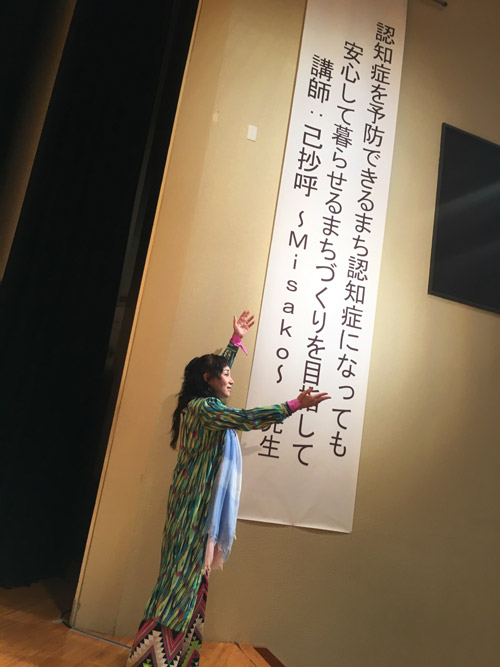 認知症を予防できるまち認知症になっても
安心して暮らせるまちづくりを目指して
講師：己抄呼 〜Misako〜 先生